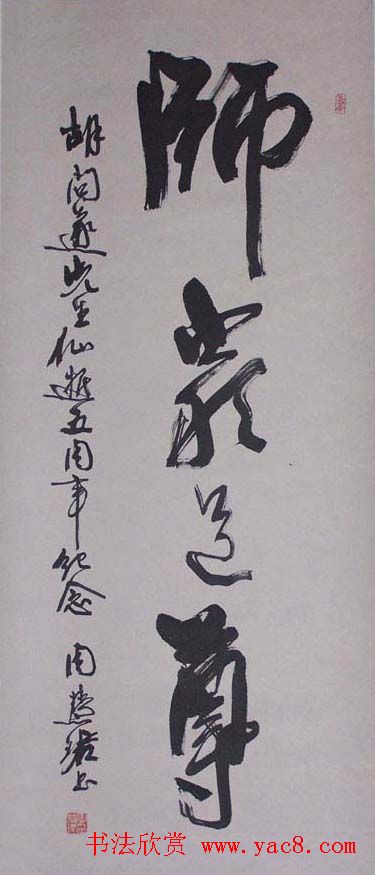 師嚴道尊
胡问遂先生仙遊五周年纪念 周慧珺书
书法欣赏 www.yac8.com